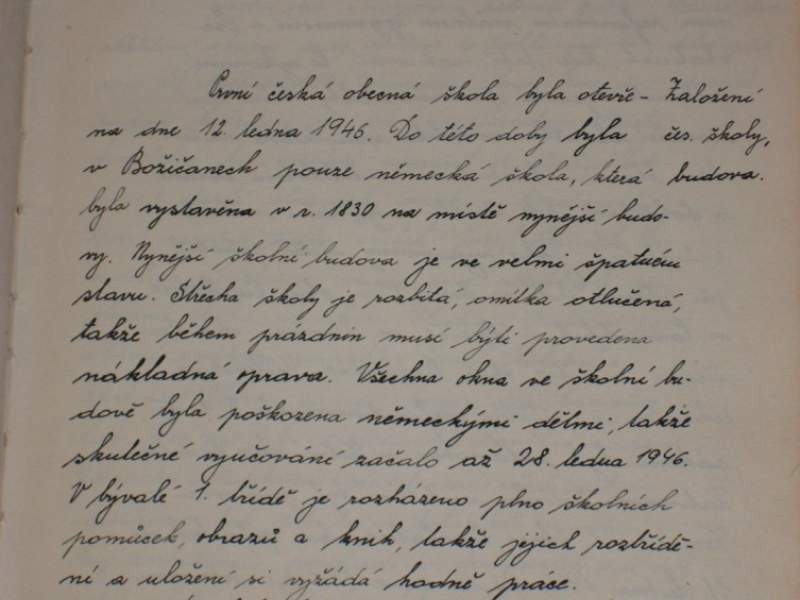 První česká obecná škola byla otevře- Založení
na dne 12. ledna 1946. Do této doby byla čes. školy,
v Božičanech pouze německá škola, která budova.
byla vystavěna v r. 1830 na místě nynější budo-
vy. Nynější školní budova je ve velmi špatném
stavu. Střecha školy je rozbitá, omítka otlučená,
takže během prázdnin musí býti provedena
nákladná oprava. Všechna okna ve školní bu-
dově byla poškozena německými dětmi, takže
skutečné vyučování začalo až 28. ledna 1946.
V bývalé 1. třídě je rozházeno plno školních
pomůcek, obrazů a knih, takže jejich roztřídě-
ní a uložení si vyžádá hodně práce.